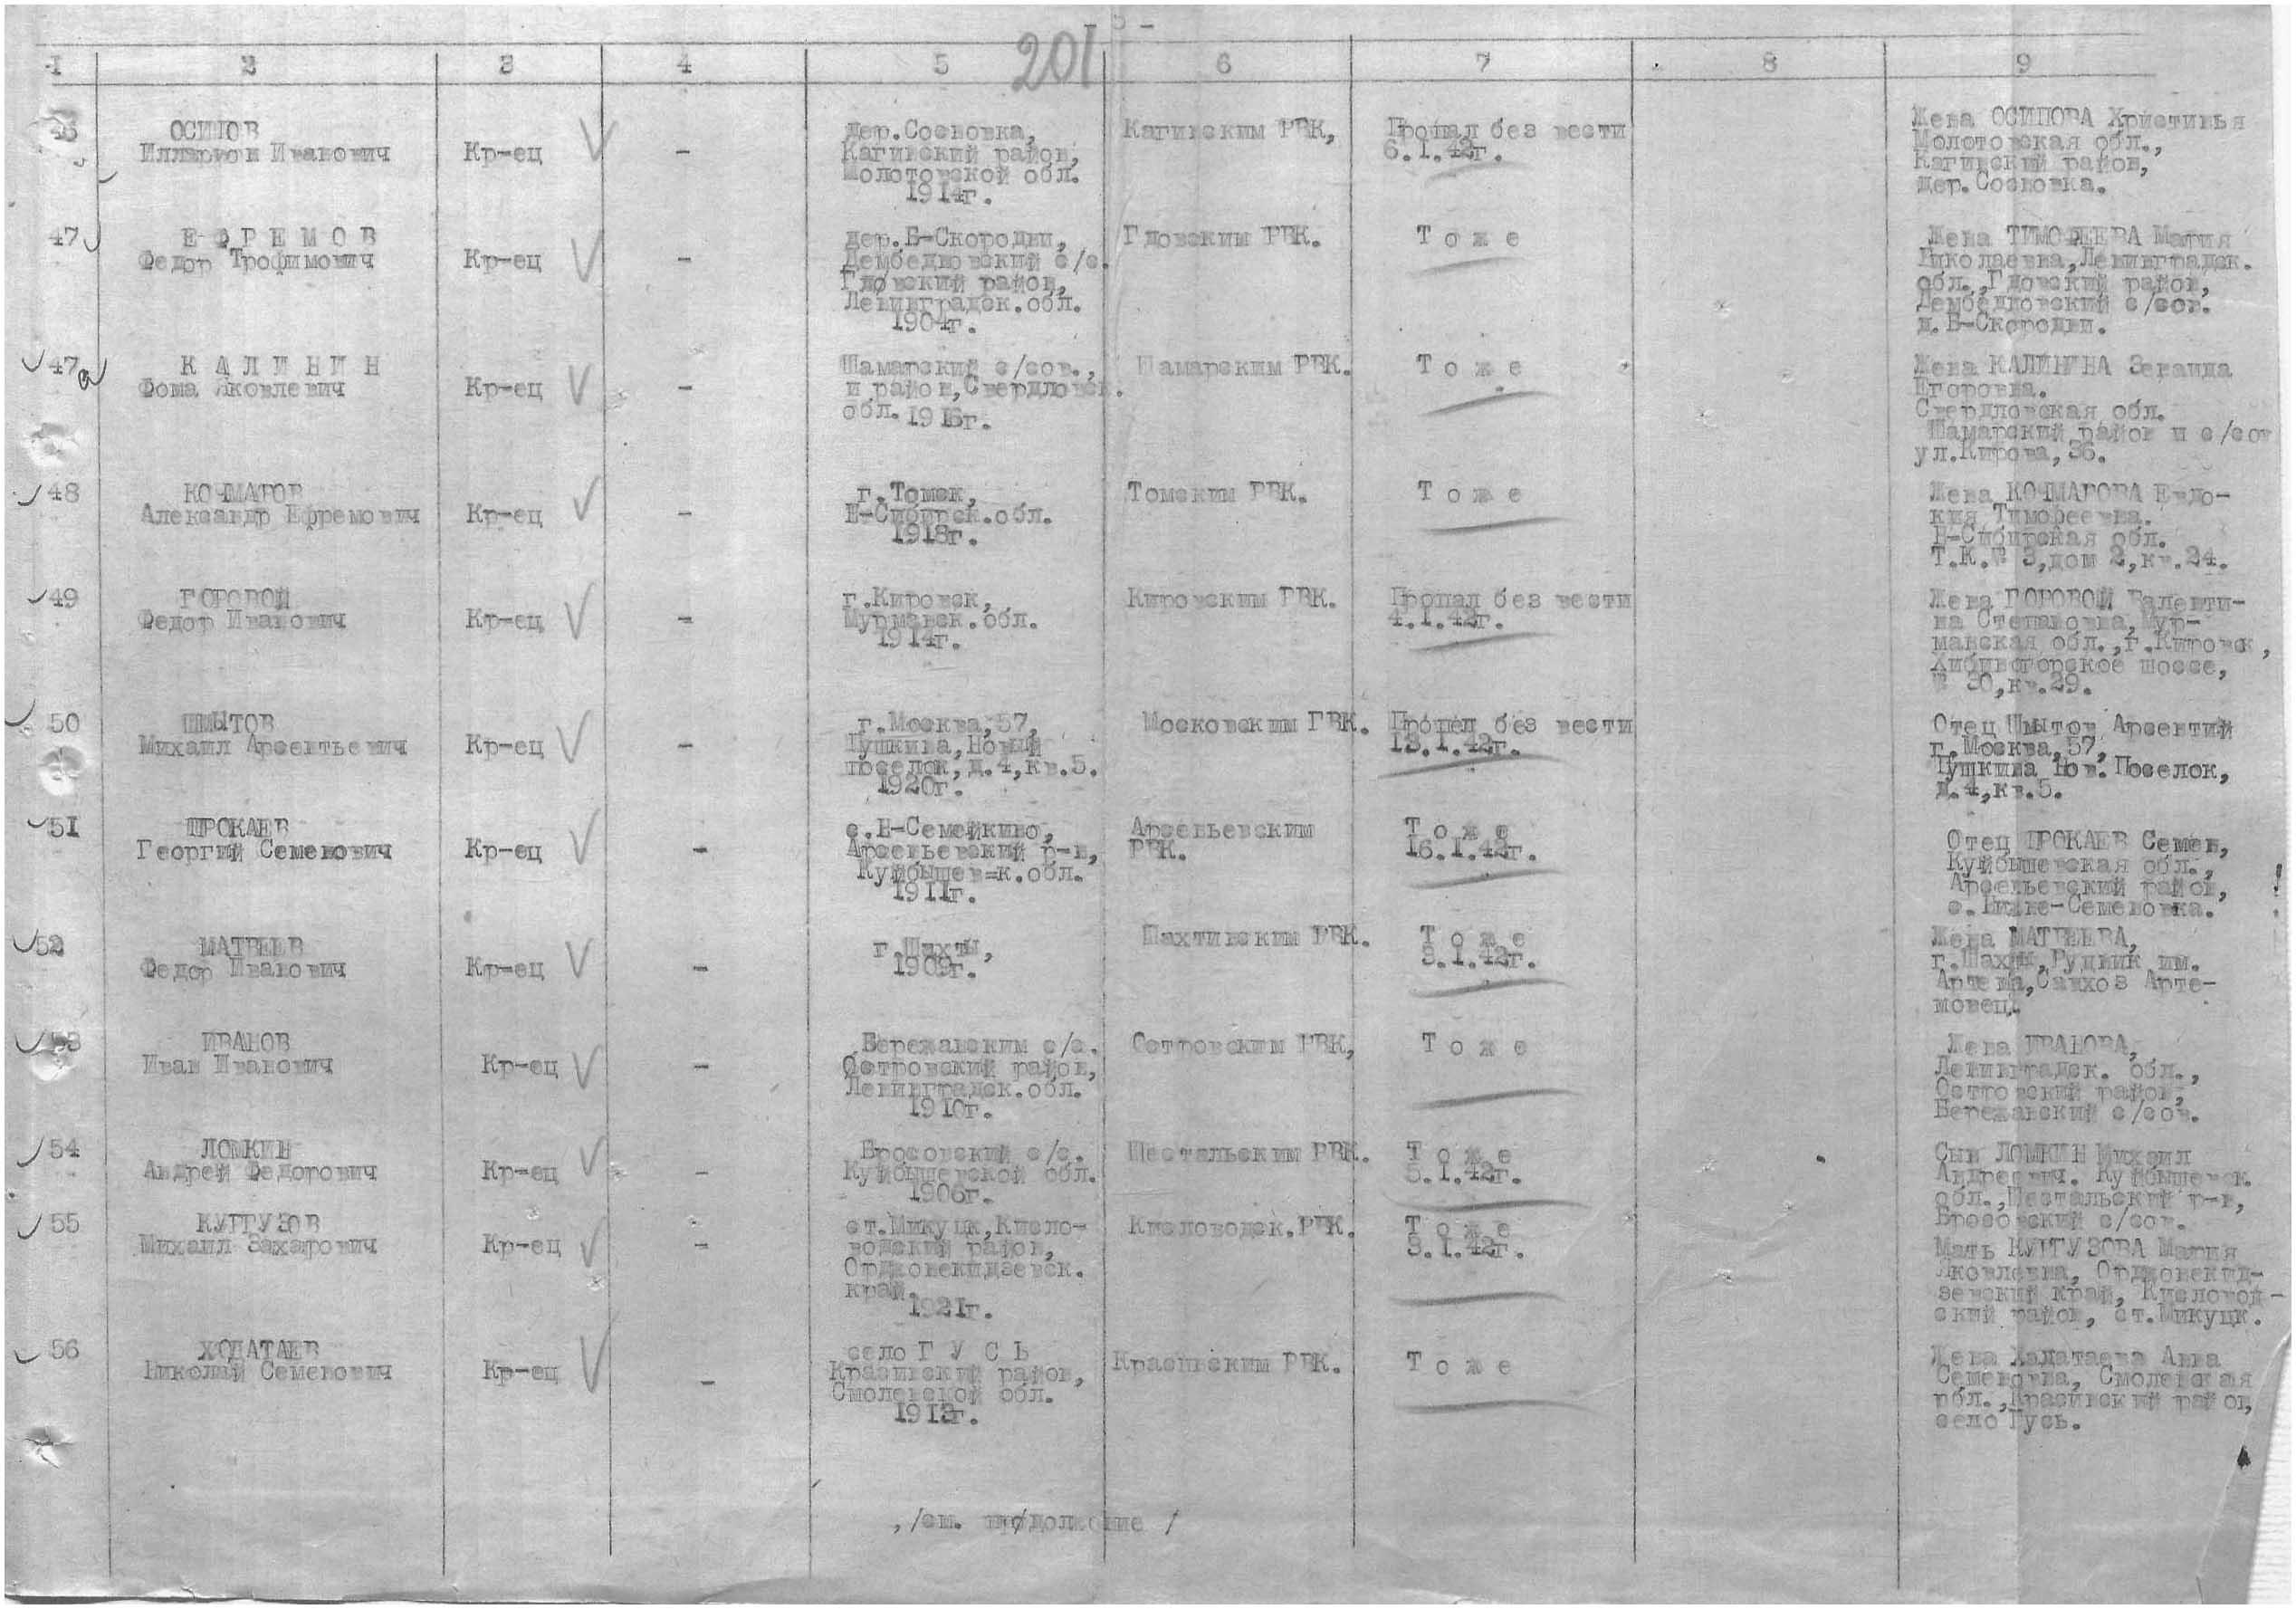 201
5 -
1 2 3 4 5 6 7 8 9
46
ОСИПОВ
Илларион Иванович
Кр-ец
-
дер.Сосновка,
Кагинский район,
Молотовской обл.
1914г.
Кагинским РВК,
Пропал без вести
6.1.42г.
Жена ОСИПОВА Христинья
Молотовская обл.,
Кагинский район,
дер.Сосновка.
47
Е Ф Р Е М О В
Федор Трофимович
Кр-ец
-
дер.Б-Скородни,
Дембедловский с/с.
Гдовский район,
Ленинградск.обл.
1904г.
Гдовским РВК.
Т о ж е
Жена ТИМОФЕЕВА Мария
Николаевна,Ленинградск.
обл.,Гдовский район,
Дембедловский с/сов.
д.Б-Скородни.
47а
К А Л И Н И Н
Фома Яковлевич
Кр-ец
-
Шамарский с/сов.,
и район,Свердловск.
обл. 1916г.
Шамарским РВК.
Т о ж е
Жена КАЛИНИНА Зенаида
Егоровна.
Свердловская обл.
Шамарский район и с/сов
ул.Кирова,36.
48
КОЧМАРОВ
Александр Ефремович
Кр-ец
-
г.Томск,
Н-Сибирск.обл.
1918г.
Томским РВК.
Т о ж е
Жена КОЧМАРОВА Евдо-
кия Тимофеевна.
Н-Сибирская обл.
Т.К.№ 3,дом 2,кв.24.
49
ГОРОВОЙ
Федор Иванович
Кр-ец
-
г.Кировск,
Мурманск.обл.
1914г.
Кировским РВК.
Пропал без вести
4.1.42г.
Жена ГОРОВОЙ Валенти-
на Степановна,Мур-
манская обл.,г.Кировск,
Хибиногорское шоссе,
№ 30,кв.29.
50
ШМЫТОВ
Михаил Арсентьевич
Кр-ец
-
г.Москва,57,
Пушкина,Новый
поселок,д.4,кв.5.
1920г.
Московским ГВК.
Пропал без вести
13.1.42г.
Отец Шмытов Арсентий
г.Москва,57,
Пушкина Нов.Поселок,
д.4,кв.5.
51
ПРОКАЕВ
Георгий Семенович
Кр-ец
-
с.Н-Семейкино,
Арсеньевский р-н,
Куйбышев=к.обл.
1911г.
Арсеньевским
РВК.
Т о ж е
16.1.42г.
Отец ПРОКАЕВ Семен,
Куйбышевская обл.,
Арсеньевский район,
с.Нижне-Семеновка.
52
МАТВЕЕВ
Федор Иванович
Кр-ец
-
г.Шахты,
1909г.
Шахтинским РВК.
Т о ж е
3.1.42г.
Жена МАТВЕЕВА,
г.Шахты,Рудник им.
Артема,Савхоз Арте-
мовец.
53
ИВАНОВ
Иван Иванович
Кр-ец
-
Бережанским с/с.
Островский район,
Ленинградск.обл.
1910г.
Островским РВК,
Т о ж е
Жена ИВАНОВА,
Ленинградск. обл.,
Островский район,
Бережанский с/сов.
54
ЛОМКИН
Андрей Федорович
Кр-ец
-
Бросовский с/с.
Куйбышевской обл.
1906г.
Шестальским РВК.
Т о ж е
5.1.42г.
Сын ЛОМКИН Михаил
Андреевич. Куйбышевск.
обл.,Шестальский р-н,
Бросовский с/сов.
55
КУРГУЗОВ
Михаил Захарович
Кр-ец
-
ст.Микуцк,Кисло-
водский район,
Орджоникидзевск.
край.
1921г.
Кисловодск.РВК.
Т о ж е
3.1.42г.
Мать КУРГУЗОВА Мария
Яковлевна, Орджоникид-
зевский край, Кисловод-
ский район, ст.Микуцк.
56
ХОДАТАЕВ
Николай Семенович
Кр-ец
-
село Г У С Ь
Краснинский район,
Смоленской обл.
1913г.
Красинским РВК.
Т о ж е
Жена Ходатаева Анна
Семеновна, Смоленская
обл.,Красинский район,
село Гусь.
,/см. продолжение /